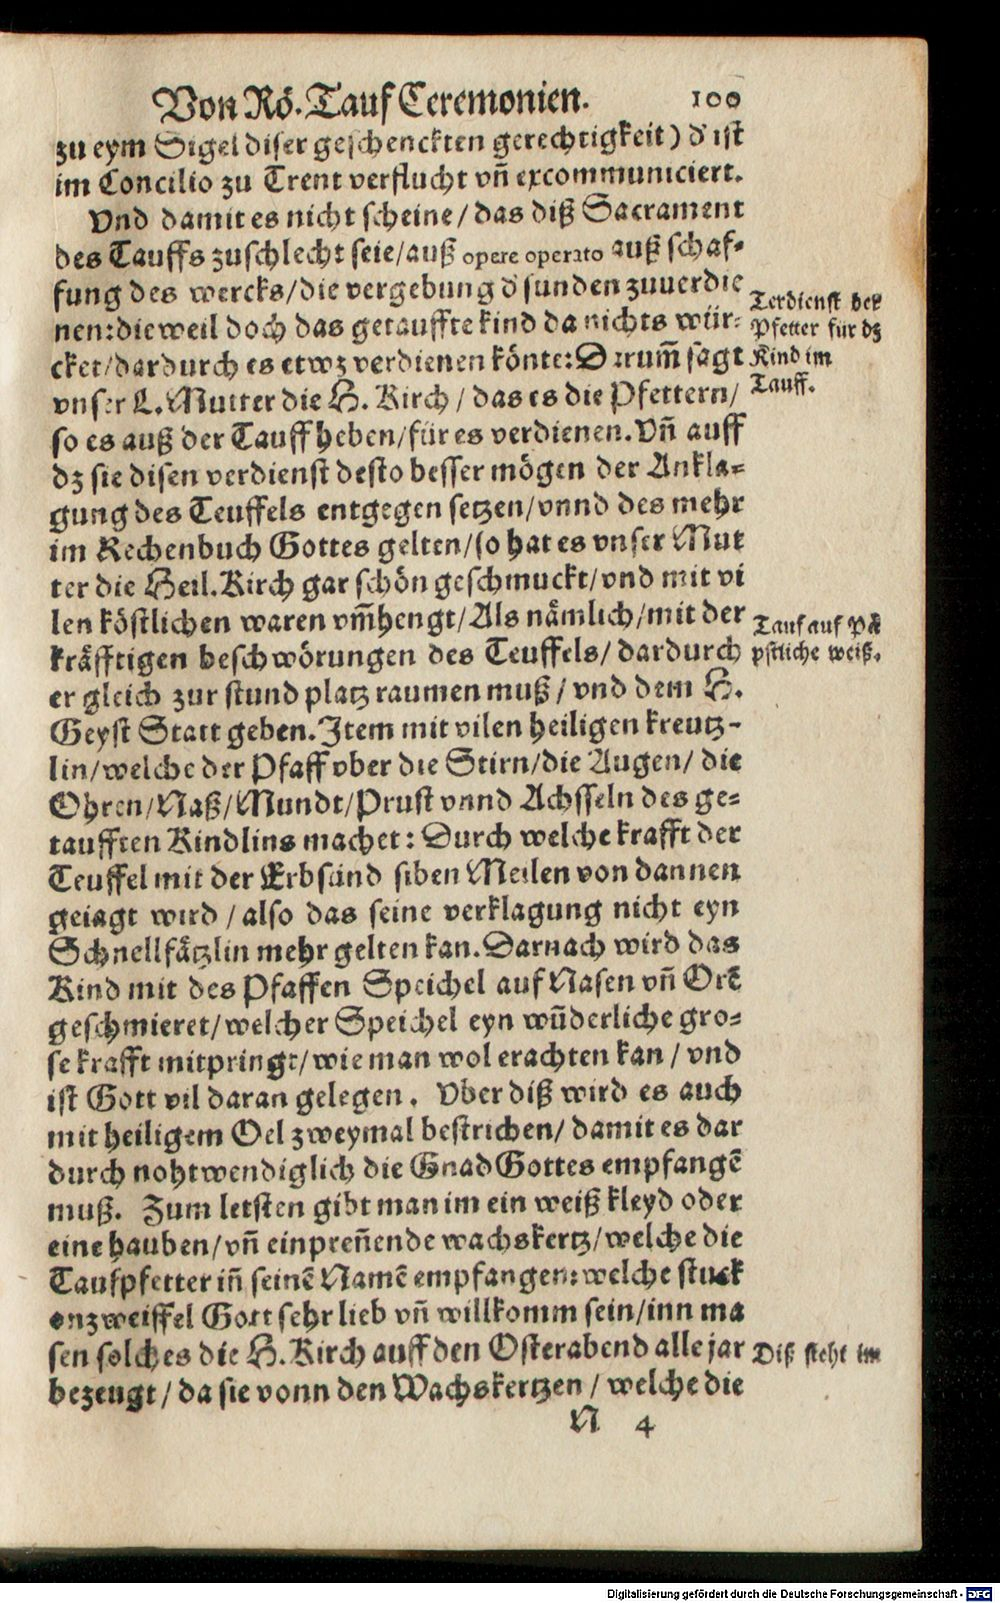 Von Rö. Tauf Ceremonien. 100
zu eym Sigel diser geschenckten gerechtigkeit) d' ist
im Concilio zu Trent verflucht vñ excommuniciert.
Vnd damit es nicht scheine / das diß Sacrament
des Tauffs zuschlecht seie/auß opere operato auß schaf-
fung des wercks/die vergebung d' sunden zuuerdie
nen: die weil doch das getauffte kind da nichts wür-
cket/dardurch es etwz verdienen könte: Darum̃ sagt
vnser L. Mutter die H. Kirch / das es die Pfettern/
so es auß der Tauff heben/für es verdienen. Vñ auff
dz sie disen verdienst desto besser mögen der Ankla-
gung des Teuffels entgegen setzen/vnnd des mehr
im Rechenbuch Gottes gelten/so hat es vnser Mut
ter die Heil. Kirch gar schön geschmuckt/vnd mit vi
len köstlichen waren vm̃hengt/Als nämlich/mit der
kräfftigen beschwörungen des Teuffels/dardurch
er gleich zur stund platz raumen muß / vnd dem H.
Geyst Statt geben. Item mit vilen heiligen kreutz-
lin/welche der Pfaff vber die Stirn/die Augen/ die
Ohren/Naß/Mundt/Prust vnnd Achsseln des ge-
taufften Kindlins machet: Durch welche krafft der
Teuffel mit der Erbsünd siben Meilen von dannen
geiagt wird / also das seine verklagung nicht eyn
Schnellfätzlin mehr gelten kan. Darnach wird das
Kind mit des Pfaffen Speichel auf Nasen vñ Orẽ
geschmieret/welcher Speichel eyn wũderliche gro-
se krafft mitpringt/wie man wol erachten kan / vnd
ist Gott vil daran gelegen. Vber diß wird es auch
mit heiligem Oel zweymal bestrichen/ damit es dar
durch nohtwendiglich die Gnad Gottes empfangẽ
muß. Zum letsten gibt man im ein weiß kleyd oder
eine hauben/vñ ein preñende wachskertz/welche die
Taufpfetter iñ seinẽ Namẽ empfangen: welche stuck
onzweiffel Gott sehr lieb vñ willkomm sein/inn ma
sen solches die H. Kirch auff den Osterabend alle jar
bezeugt / da sie vonn den Wachskertzen / welche die
N 4
Verdienst der
Pfetter für dz
Kind im
Tauff.
Tauf auf Pä
pstliche weiß.
Diß steht im
Digitalisierung gefördert durch die Deutsche Forschungsgemeinschaft - DFG